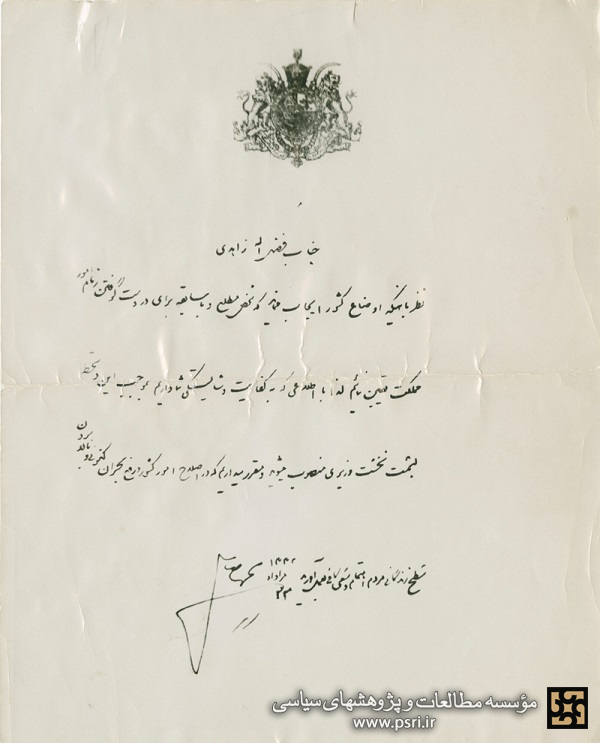 جناب فضل اله زاهدی
نظر باینکه اوضاع کشور ایجاب مینماید که شخص مطلع و باسابقه برای در دست گرفتن زمام امور
مملکت تعیین نمائیم لذا با اطلاعی که به کفایت و شایستگی شما داریم بموجب این دستخط
بسمت نخست وزیری منصوب میشوید و مقرر میداریم که در اصلاح امور کشور و رفع بحران کنونی و بالا بردن
سطح زندگانی مردم اهتمام و سعی کافی بعمل آورید
مرداد
مؤسسه مطالعات و پژوهشهای سیاسی
www.psri.ir